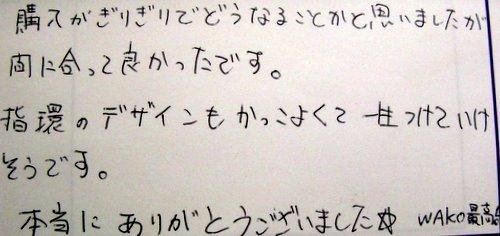 購入がぎりぎりでどうなることかと思いましたが
間に合って良かったです。
指環のデザインもかっこよくて一生つけていけ
そうです。
本当にありがとうございました☆ WAKO最高